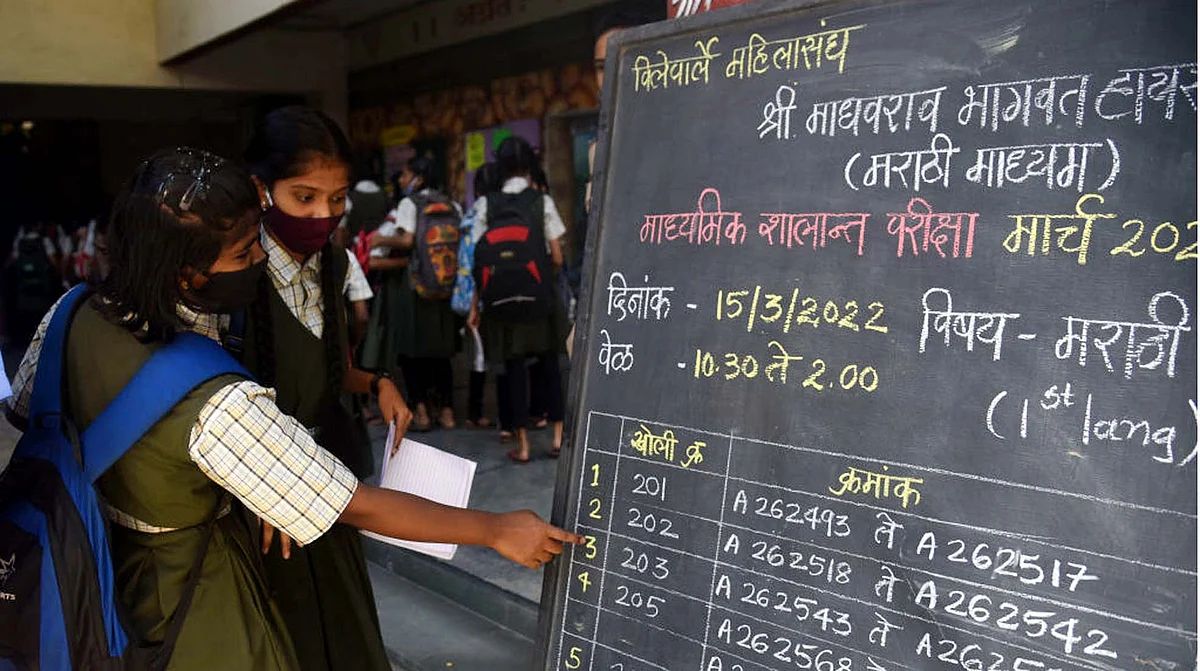 विलेपार्ले महिलासंघ
श्री. माधवराव भागवत
(मराठी माध्यम)
माध्यमिक शालान्त परीक्षा मार्च
दिनांक - 15/3/2022 विषय - मराठी
वेळ - 10.30 ते 2.00
(1st lang)
खोली क्र क्रमांक
1 201 A 262493 ते A 262517
2 202 A 262518 ते A 262542
3 203 A 262543 ते
4 205 A 262568
5